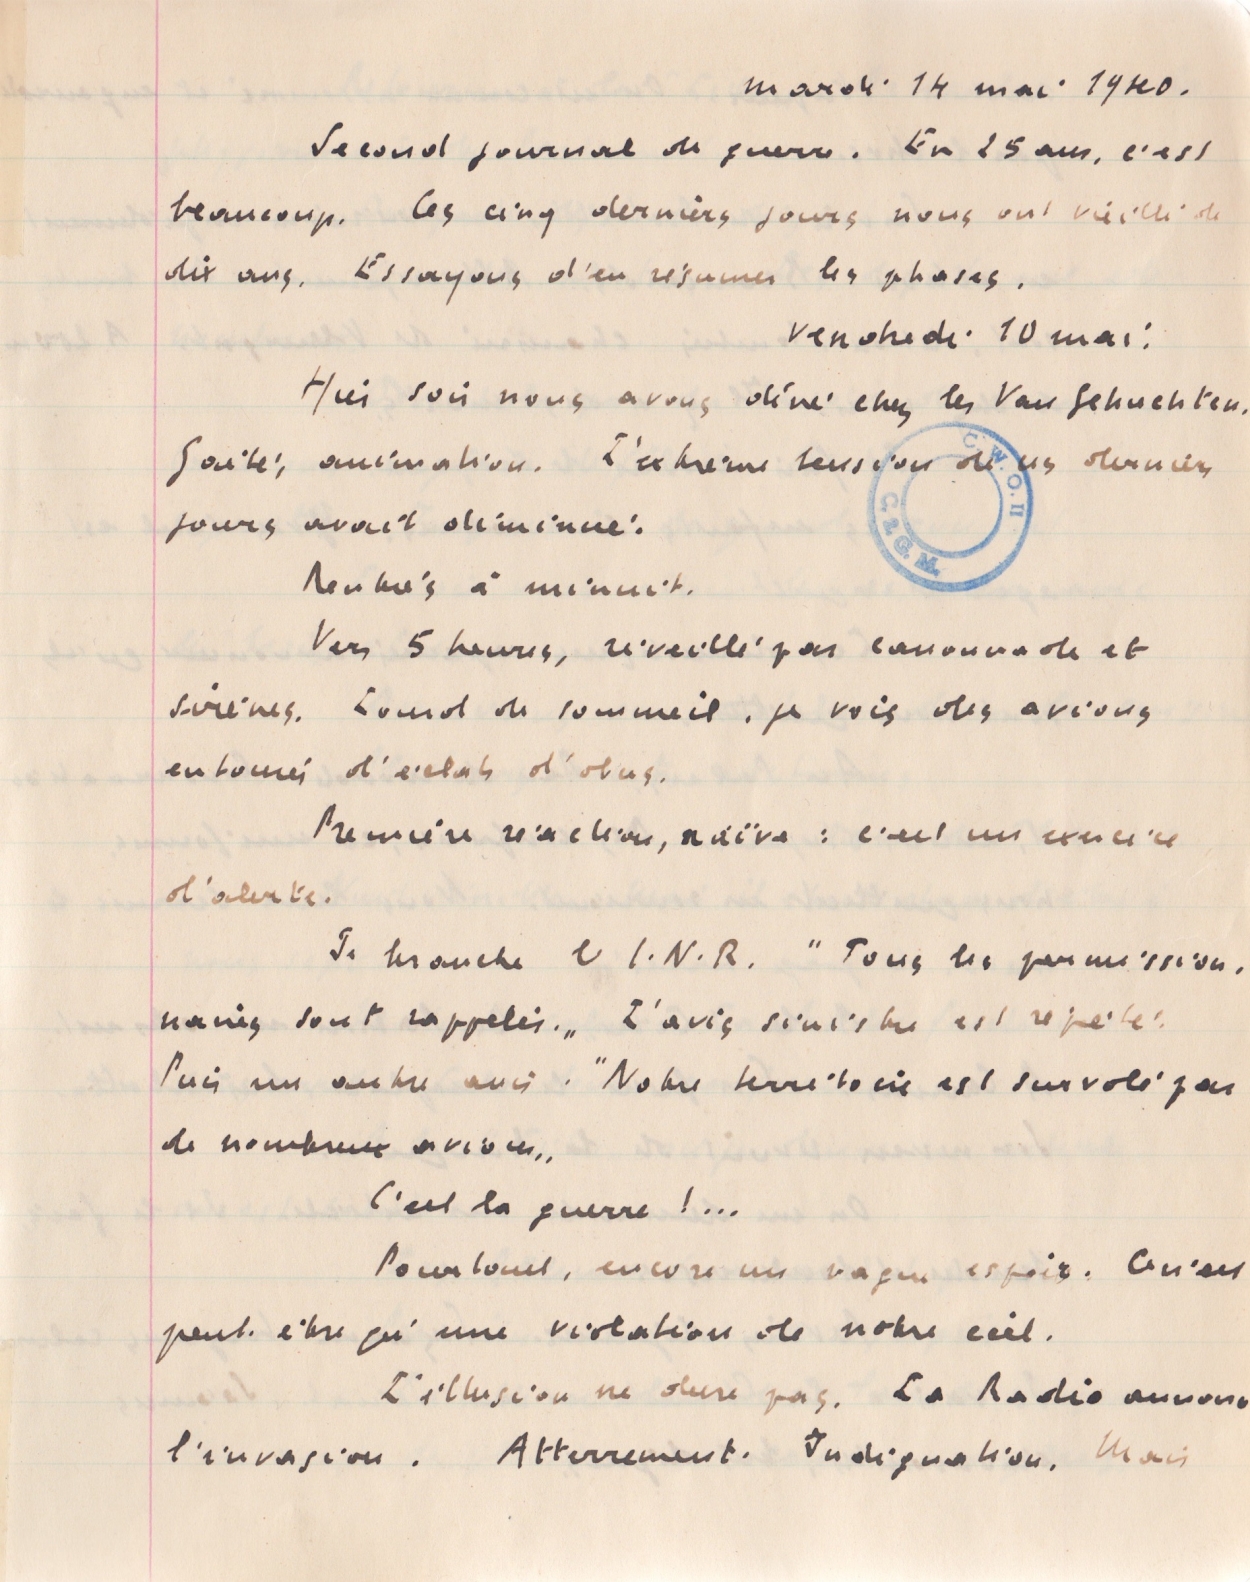 Mardi 14 mai 1940.
Second journal de guerre. En 25 ans, c'est
beaucoup. Ces cinq derniers jours nous ont vieilli de
dix ans. Essayons d'en résumer les phases.
Vendredi 10 mai:
Hier soir nous avons dîné chez les Van Gehuchten.
Gaîté, animation. L'extrême tension de ces derniers
jours avait diminué.
Rentrés à minuit.
Vers 5 heures, réveillé par canonnade et
sirènes. Lourd de sommeil, je vois des avions
entourés d'éclats d'obus.
Première réaction, naïve : c'est un exercice
d'alerte.
Je branche l'I.N.R. "Tous les permission-
naires sont rappelés.„ L'avis sinistre est répété.
Puis un autre avis : "Notre territoire est survolé par
de nombreux avions„
C'est la guerre !...
Pourtant, encore un vague espoir. Ce n'est
peut-être qu'une violation de notre ciel.
L'illusion ne dure pas. La Radio annonce
l'invasion. Atterrement. Indignation. Mais
C.W.O.II
C.2.G.M.